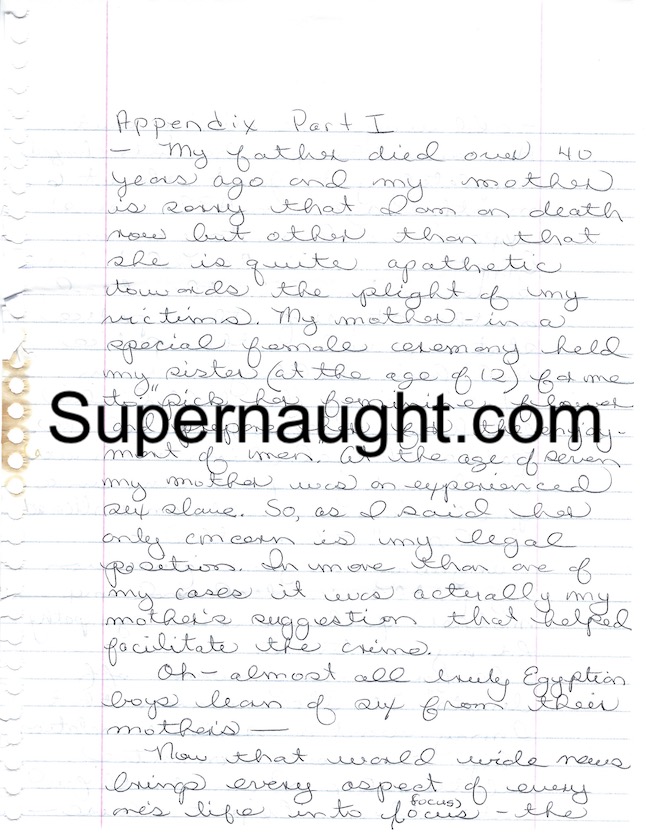 Appendix Part I
- My father died over 40
years ago and my mother
is sorry that I am on death
row but other than that
she is quite apathetic
towards the plight of my
victims. My mother - in a
special female ceremony held
my sister (at the age of 12) for me
to "pick her
Supernaught.com
ment of men. At the age of seven
my mother was an experienced
sex slave. So, as I said her
only concern is my legal
position. In more than one of
my cases it was actually my
mother's suggestion that helped
facilitate the crime.
Oh - almost all truly Egyptian
boys learn of sex from their
mother's —
Now that world wide news
brings every aspect of every
one's life into focus (focus) - the